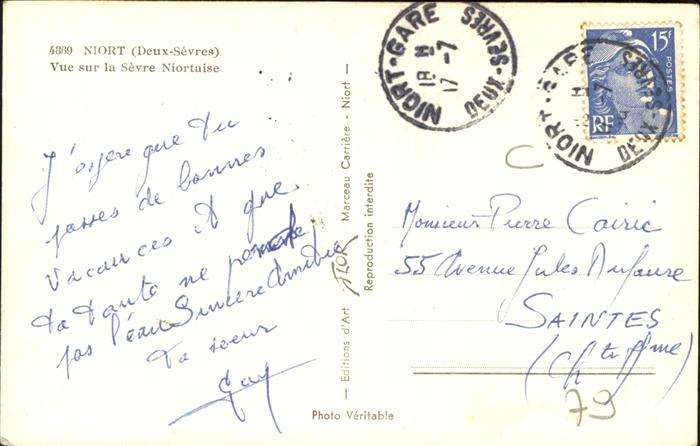 4369 NIORT (Deux-Sèvres)
Vue sur la Sèvre Niortaise
J'espère que tu
passes de bonnes
vacances et que
ta santé ne
pas Sincère Amitié
Ta soeur
— Editions d'Art - Marceau Carrière - Niort —
Reproduction interdite
Photo Véritable
NIORT-GARE
18 H
17-7
DEUX-SEVRES
NIORT-GARE
DEUX-SEVRES
15F
POSTES
RF
C
Monsieur Pierre Cairic
55 Avenue Jules Dufaure
SAINTES
(Chte Mme)
79